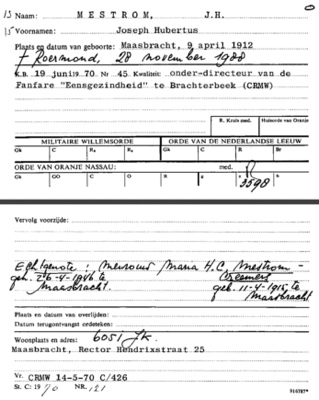 13 Naam: MESTROM, J.H.
15 Voornamen: Joseph Hubertus
Plaats en datum van geboorte: Maasbracht, 9 april 1912
† Roermond, 28 november 1988
K.B. 19 juni 1970. Nr. 45. Kwaliteit: onder-directeur van de
Fanfare "Eensgezindheid" te Brachterbeek (CRMW)
R. Kruis med. Huisorde van Oranje
MILITAIRE WILLEMSORDE ORDE VAN DE NEDERLANDSE LEEUW
Gk C R Gk C R Br
ORDE VAN ORANJE NASSAU: med.
Gk GO C O R g z b
3598
Vervolg voorzijde:
Echtgenote: Mevrouw Maria H.C. Mestrom-
Creemers
geh. 26-4-1946 te geb. 11-4-1915 te
Maasbracht Maasbracht
Plaats en datum van overlijden:
Datum terugontvangst ordeteken:
Woonplaats en adres: 6051 JK
Maasbracht, Rector Hendrixstraat 25
Vr. CRMW 14-5-70 C/426
St. C: 1970 NR. 121